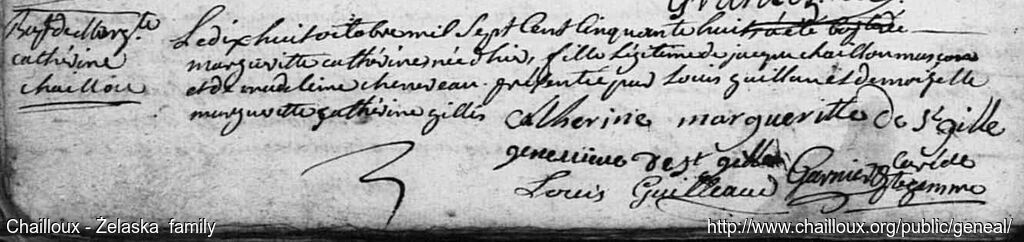 Bapt de Marg.te
catherine
chaillou
Le dix huit octobre mil Sept Cent Cinquante huit a été baptisée
margueritte catherine née d'hier, fille Légitime de jacque chaillou maçon
et de madeleine cheneveau presentée par Louis guillau et demoizelle
marguerite catherine gilles
catherine margueritte De St gille
genevieve De st gille
Louis Guilleaud
Garnier curé de
Ste gemme
Chailloux - Żelaska family
http://www.chailloux.org/public/geneal/